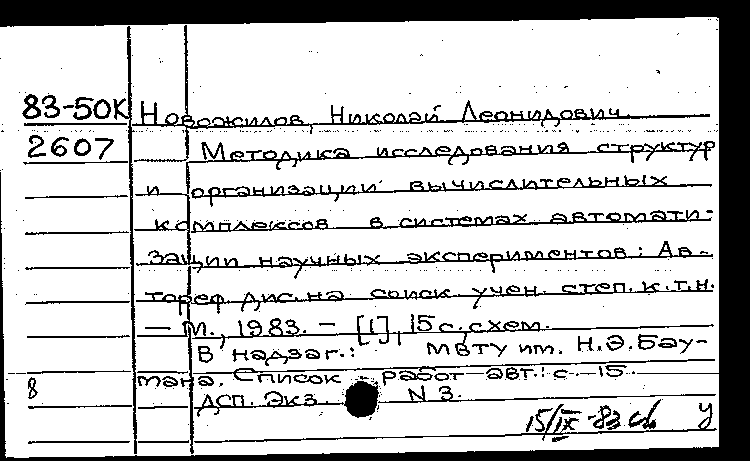 83-50К Новожилов, Николай Леонидович.
2607 Методика исследования структур
и организации вычислительных
комплексов в системах автомати-
зации научных экспериментов: Ав-
тореф. дис. на соиск. учен. степ. к.т.н.
— М., 1983. — [1], 15 с., схем.
В надзаг.: МВТУ им. Н.Э.Бау-
мана. Список работ авт.: с. 15.
8 ДСП. Экз. N 3.
15/IX-83 У